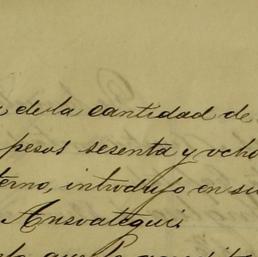 de la cantidad de
pesos sesenta y ocho
terno, introdujo en su
Ansvategui.